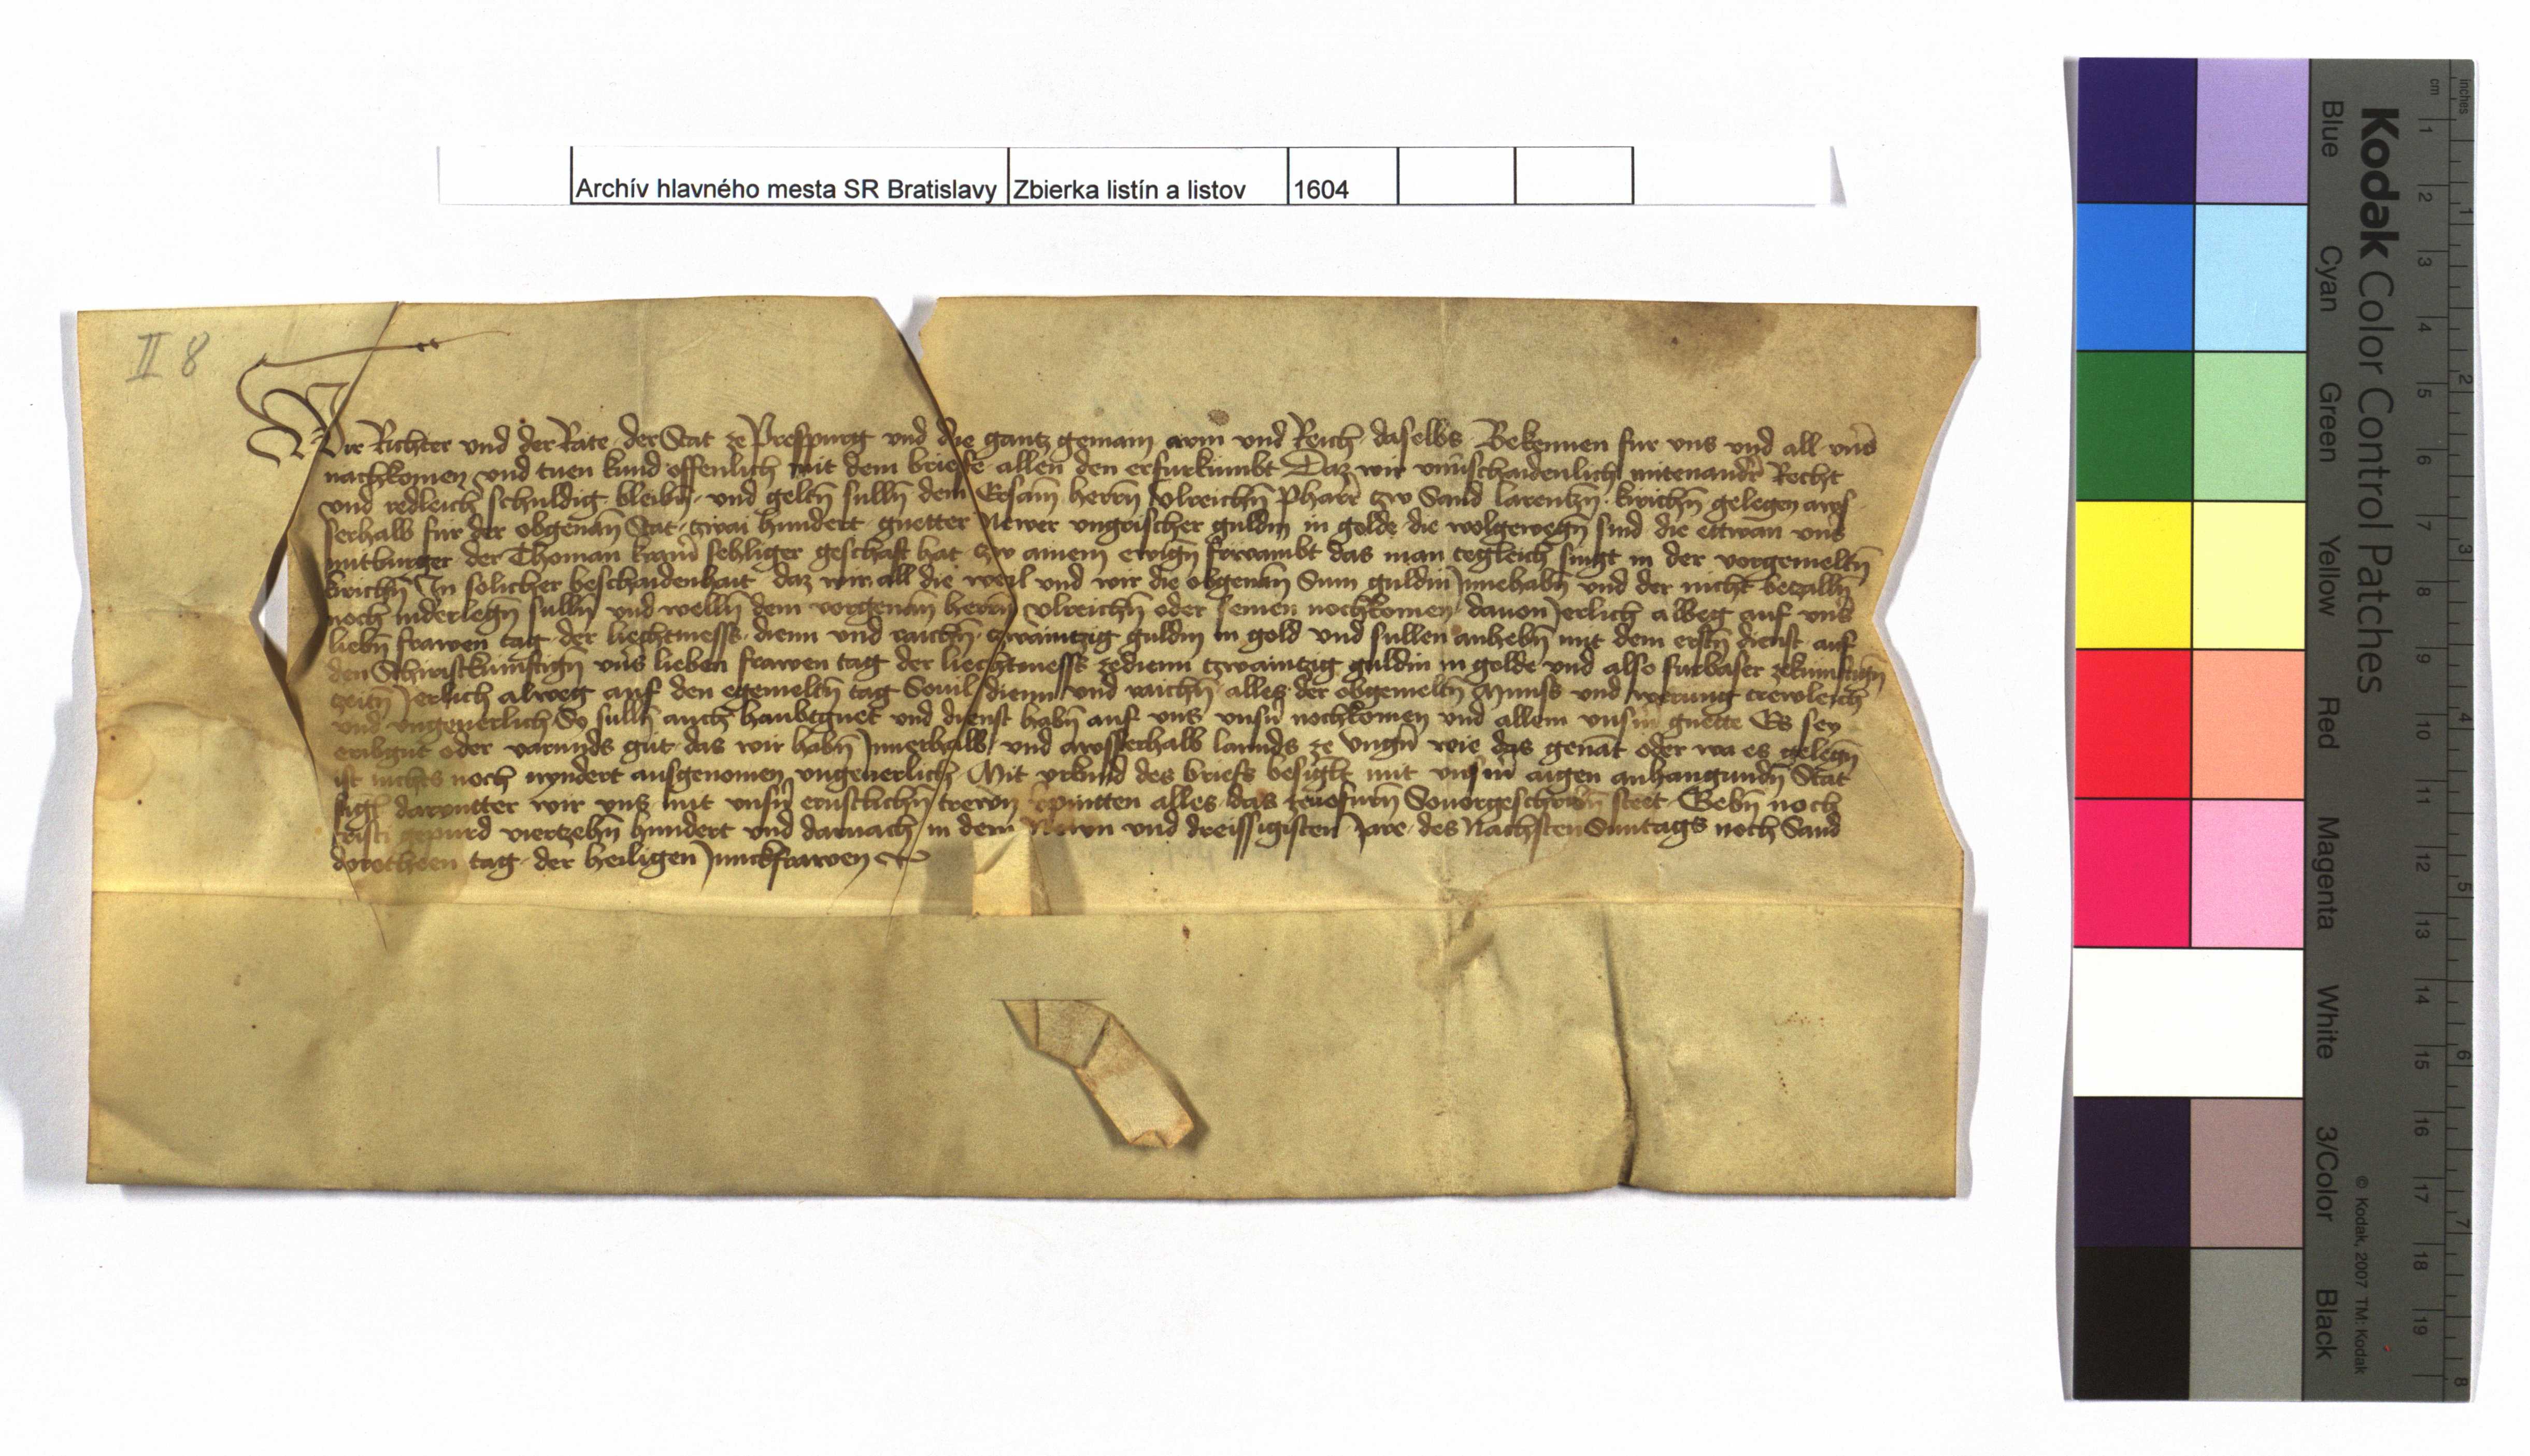 Archív hlavného mesta SR Bratislavy Zbierka listín a listov 1604
II 8
Wir Richter und der Rate der Stat ze Prespurg und die gantz gemain arm und Reich daselbs Bekennen fur uns und all unß
nachkomen und tuen kund offenlich mit dem briefe allen den er furkumbt Daz wir unuerschaidenlich mitenander Recht
und redleich schuldig bleibn und geltn sulln dem Ersam herrn Ulreichn Pharr czw Sand larentzn kirichn gelegen aws
serhalb fur der obgenan Stat zwai hundert guetter Newer ungrischer guldin in golde die wolgewegn sind die ettwan unß
mitburger der Thoman kramer sehliger geschaft hat czw ainem ewign frwambt das man tegleich singt in der vorgemeltn
kirichn In solicher beschaidenhait daz wir all die weil und wir die obgenan Sum guldin Innehabn und der nicht beczalln
noch niderlegn sulln und welln dem vorgenan herrn Ulreichn oder seinen nochkomen dauon Jerlich albeg auf unß
liebn frawen tag der liechtmess dienn und raichn czwaintzig guldin in gold und sullen anhebn mit dem erstn dienst auf
den Schiristkumftign unß lieben frawen tag der liechtmess zedienn tzwaintzig guldin in golde und also furbaser zekumftign
zeitn Jerlich alweg auf den egemeltn tag Souil dienn und raichn alles der obgemeltn Munss und werung trewleich
und ungeuerlich So sulln auch haubtguet und dienst habn auf uns unsn nochkomen und allem unsm guette Es sey
eribgut oder varunds gut das wir habn Innerhalb und awsserhalb lannds ze Ungn wie das genat oder wa es gelegn
ist nichts noch nyndert ausgenomen ungeuerlich Mit urkund des briefs besiglt mit unsm aigen anhangundn Stat
sigl darunter wir uns mit unsn ernstlichn trewn verpintten alles das zeuofurn Souorgeschribn stet Gebn noch
cristi gepurd viertzehn hundert und darnach in dem Newn und dreissigisten Jare des Nachsten Suntags noch Sand
dorotheen tag der heiligen Junckfrawen
Kodak Color Control Patches
Blue Cyan Green Yellow Red Magenta White 3/Color Black
© Kodak, 2007 TM: Kodak
inches 1 2 3 4 5 6 7 8
cm 1 2 3 4 5 6 7 8 9 10 11 12 13 14 15 16 17 18 19